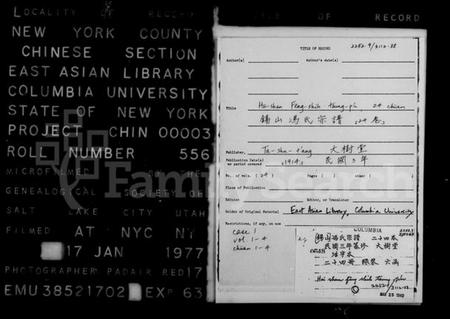 LOCALITY OF RECORD
NEW YORK COUNTY
CHINESE SECTION
EAST ASIAN LIBRARY
COLUMBIA UNIVERSITY
STATE OF NEW YORK
PROJECT CHIN 00003
ROLL NUMBER 556
MICROFILMED
GENEALOGICAL SOCIETY OF
SALT LAKE CITY UTAH
FILMED AT NYC NY
17 JAN 1977
PHOTOGRAPHER PADAIR RED 17
EMU 38521702 EXP 63
OF RECORD
TITLE OF RECORD
2252.9/3112.88
Author(s)
Author's date(s)
Title
Hsi-shan Feng-shih tsung-p'u, 24 chüan
錫山馮氏宗譜 24卷
Publisher
Ta-shu-t'ang 大樹堂
Publication Date(s)
or period covered
1914 民國三年
No. of vols. (24) Pages ( )
Place of Publication
Editor, or Translator
Holder of Original Material East Asian Library, Columbia University
Restrictions, if any, on use
case 1
vol. 1-4
chüan 1-4
COLUMBIA
錫山馮氏宗譜 二十四卷
民國三年 大樹堂
活字本
二十四冊
Hsi shan feng shih tsung p'u
FamilySearch